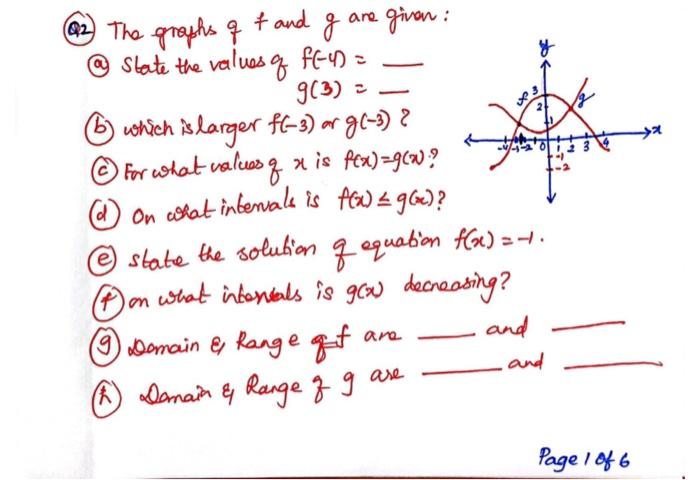 Q2 The graphs of f and g are given :
(a) State the values of f(-4) = ___
g(3) = ___
(b) which is larger f(-3) or g(-3) ?
(c) For what values of x is f(x)=g(x)?
(d) On what intervals is f(x) ≤ g(x)?
(e) state the solution of equation f(x) = -1.
(f) on what intervals is g(x) decreasing?
(g) Domain & Range of f are ___ and ___
(h) Domain & Range of g are ___ and ___
y
f 3 g
2
1
-4 -3 -2 0 1 2 3 4 x
-1
-2
Page 1 of 6